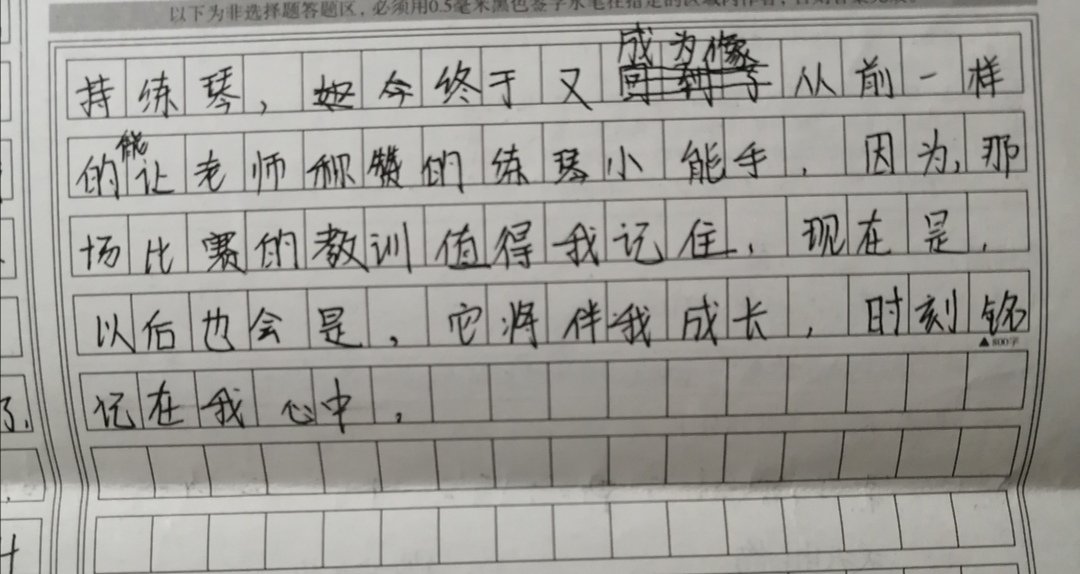 以下为非选择题答题区，必须用0.5毫米黑色签字水笔在指定的区域内作答，否则答案无效。
持练琴，如今终于又成为像从前一样
的能让老师称赞的练琴小能手，因为，那
场比赛的教训值得我记住，现在是，
以后也会是，它将伴我成长，时刻铭
▲800字
记在我心中，